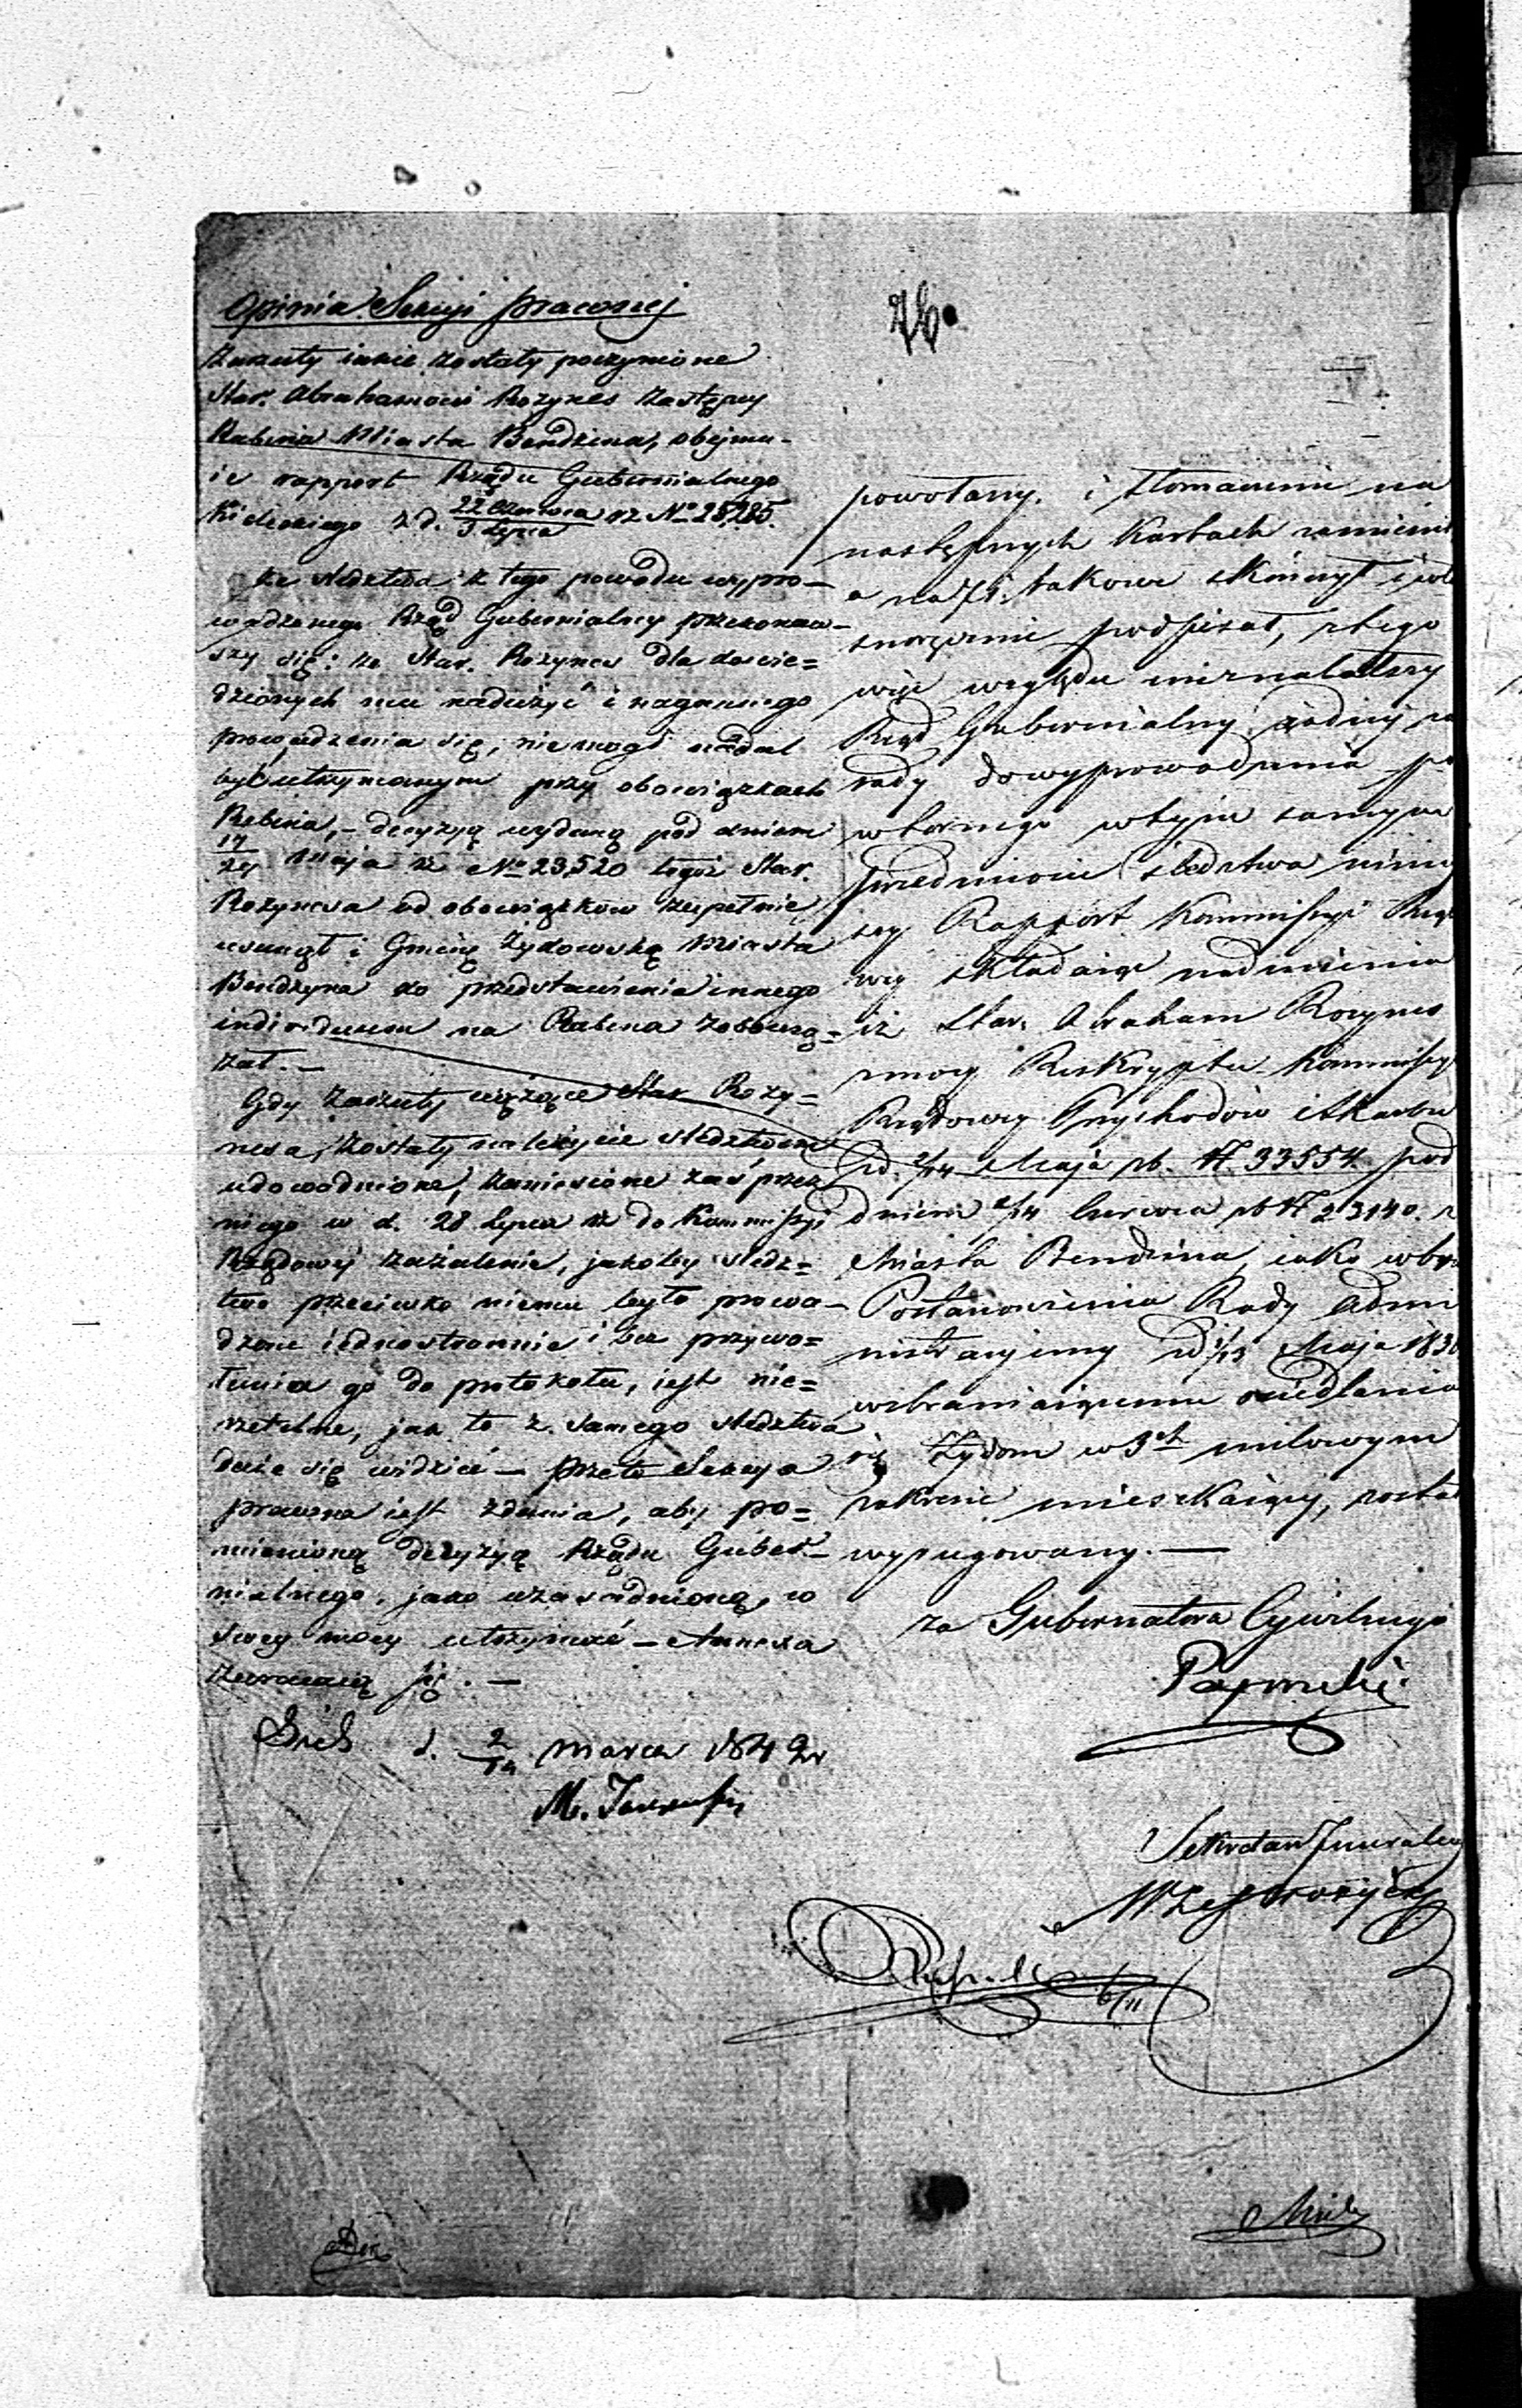 Opinia Sekcyi prawnej
Zarzuty iakie zostały poczynione
Star. Abrahamowi Rozynes Zastępcy
Rabina Miasta Bendzina, obejmu-
ie rapport Rządu Gubernialnego
Kieleckiego z d. 22 Czerwca / 3 Lipca rz No 25,285.
Ze śledztwa z tego powodu wypro-
wadzonego Rząd Gubernialny przekonaw-
szy się: że Star. Rozynes dla dowie=
dzionych mu nadużyć i nagannego
prowadzenia się, nie mógł nadal
być utrzymanym przy obowiązkach
Rabina, - decyzyą wydaną pod dniem
17/29 Maja rz No 23,520 tegoż Star.
Rozynesa od obowiązków zupełnie
usunął i Gminę Żydowską Miasta
Bendzyna do przedstawienia innego
individuum na Rabina zobowią=
zał. -
Gdy zarzuty ciążące Star Rozy=
nesa, zostały należycie śledztwem
udowodnione, zaniesione zaś przez
niego w d. 28 Lipca rz do Kommissyi
Rządowej zażalenie, jakoby śledz=
two przeciwko niemu było prowa-
dzone iednostronnie i bez przywo=
łania go do protokołu, iest nie=
rzetelne, jak to z samego śledztwa
daie się widzieć - przeto Sekcya
prawna iest zdania, aby po=
mienioną decyzyą Rządu Guber-
nialnego, jako uzasadnioną, w
swej mocy utrzymać - Annexa
zwracaią się. -
d. 2/14 marca 1842 r
M.
76.
powołany. i tłomaczenie na
następnych Kartach zamieścił
a na takowe skończył i wła
snoręcznie podpisał, z tego
więc względu nieznalazłszy
Rząd Gubernialny żadnej za
sady do wyprowadzenia po
wtórnego w tym samym
przedmiocie śledztwa niniej
szy Rapport Kommissyi Rzą
wey składaiąc nadmienia
iż Star. Abraham Rozynes
z mocy Reskryptu Kommissyi
Rządowey Przychodów i Skarbu
z d. 2/14 Maja rb. N. 33554 pod
dniem 2/14 Czerwca rb N 23140. z
Miasta Bendzina, iako wbrew
Postanowienia Rady Admi
nistracyiney z d 1/13 Maja 183
wzbraniaiącemu osiedlania
się Żydom w 3ch milowym
zakresie mieszkaiący, został
wyrugowany. -
za Gubernatora Cywilnego
Sekretarz Jeneralny
6/11